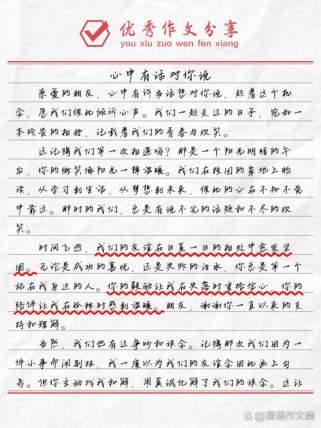 优秀作文分享
you xiu zuo wen fen xiang
心中有话对你说
亲爱的朋友，心中有许多话想对你说，趁着这个机
会，愿我们彼此倾诉心声。我们一起走过的日子，宛如一
本珍贵的相册，记载着我们的青春与欢笑。
还记得我们第一次相遇吗？那是一个阳光明媚的午
后，你的微笑像阳光一样温暖。我们在校园的草地上畅
谈，从学习到生活，从梦想到未来，彼此的心在不知不觉
中靠近。那时的我们，总是有说不完的话题和不尽的欢
笑。
时间飞逝，我们的友谊在日复一日的相处中愈发坚
固。无论是成功的喜悦，还是失败的泪水，你总是第一个
站在我身边的人。你的鼓励让我在失落时重拾信心，你的
陪伴让我在孤独时感到温暖。朋友，谢谢你一直以来的支
持和理解。
当然，我们也有过争吵和误会。记得那次我们因为一
件小事而闹别扭，我一度以为我们的友谊会因此画上句
号。但你主动找我和解，用真诚化解了我们的误会。这让